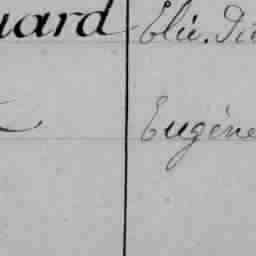 uard Elie. Di
Eugéne